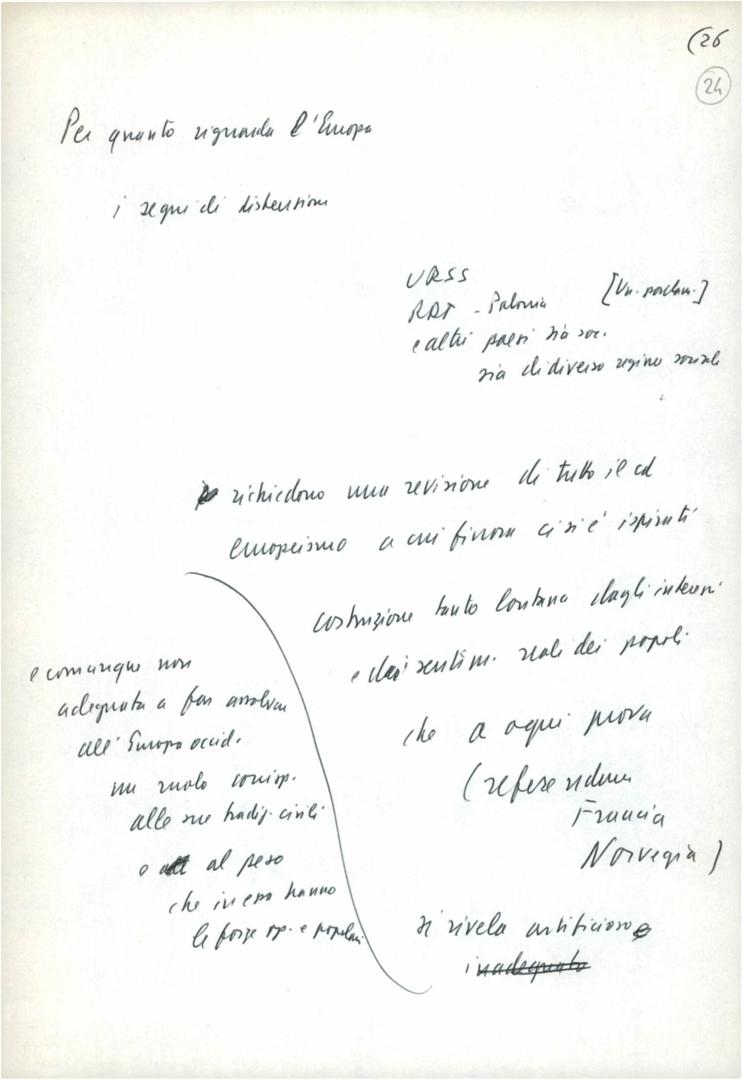 (26
24
Per quanto riguarda l'Europa
i segni di distensione
URSS
RDT - Polonia [Un. parlam.]
e altri paesi sia soc.
sia di diverso regime sociale
richiedono una revisione di tutto il cd
europeismo a cui finora ci si è ispirati
costruzione tanto lontana dagli interessi
e dai sentim. reali dei popoli
che a ogni prova
(referendum
Francia
Norvegia)
si rivela artificioso e
inadeguato
e comunque non
adeguata a far assolvere
all'Europa occid.
un ruolo corrisp.
alle sue tradiz. civili
e al peso
che in essa hanno
le forze op. e popolari